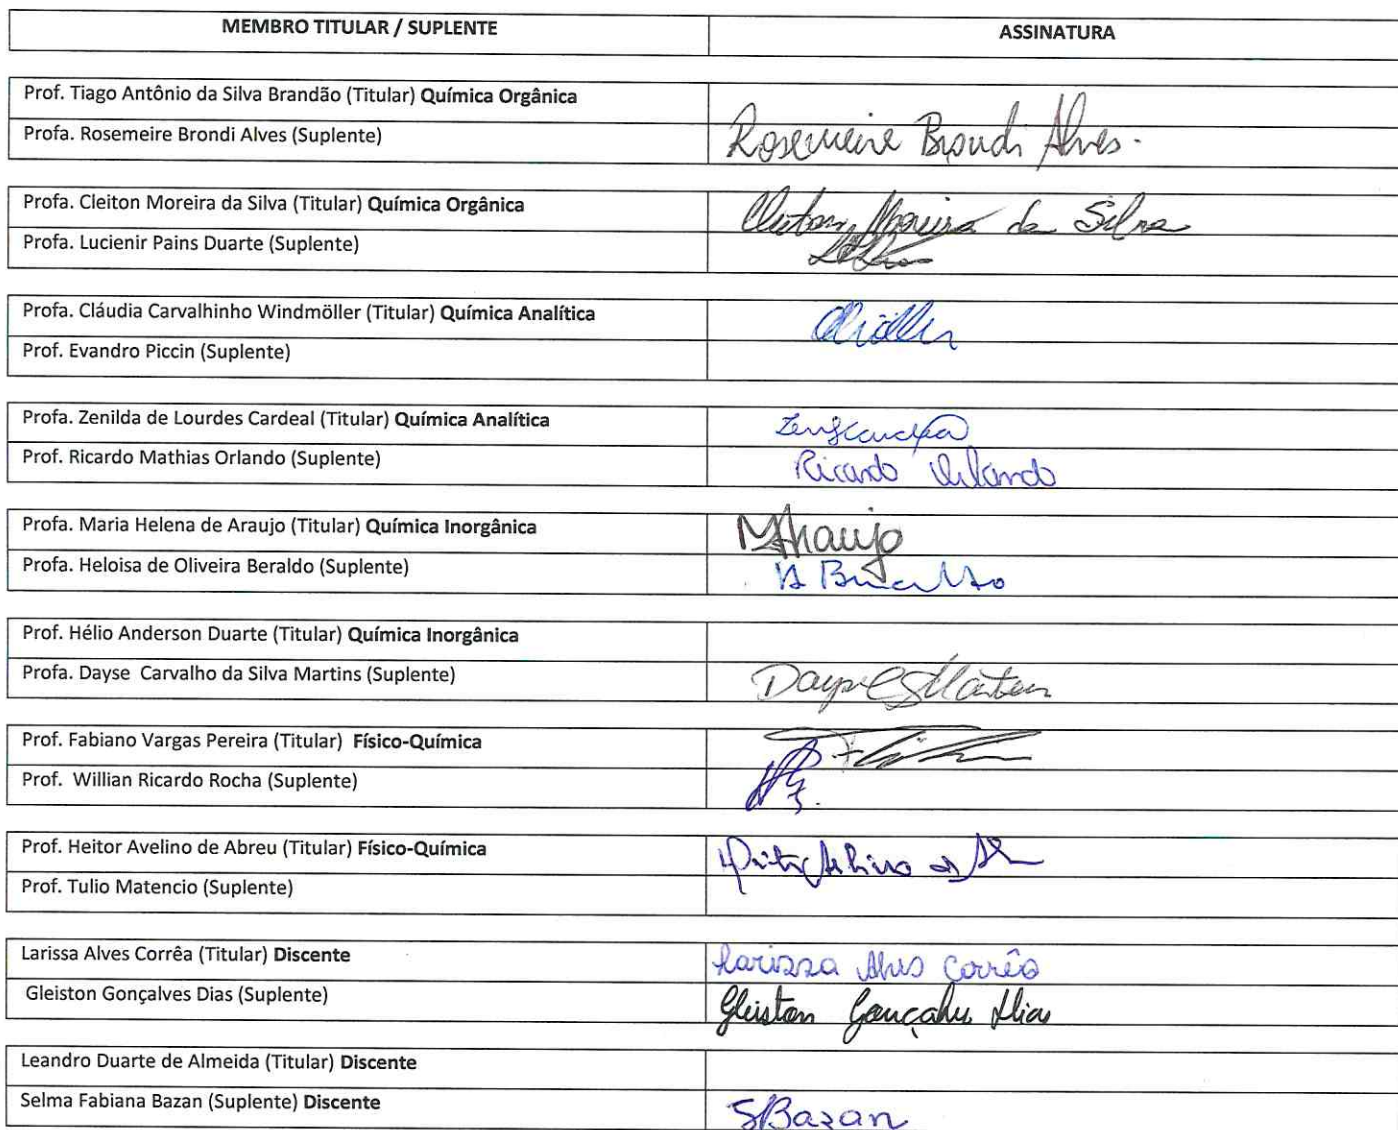 MEMBRO TITULAR / SUPLENTE ASSINATURA
Prof. Tiago Antônio da Silva Brandão (Titular) Química Orgânica
Profa. Rosemeire Brondi Alves (Suplente) Rosemeire Brondi Alves.
Profa. Cleiton Moreira da Silva (Titular) Química Orgânica Cleiton Moreira da Silva
Profa. Lucienir Pains Duarte (Suplente)
Profa. Cláudia Carvalhinho Windmöller (Titular) Química Analítica
Prof. Evandro Piccin (Suplente)
Profa. Zenilda de Lourdes Cardeal (Titular) Química Analítica
Prof. Ricardo Mathias Orlando (Suplente) Ricardo Orlando
Profa. Maria Helena de Araujo (Titular) Química Inorgânica MHaraujo
Profa. Heloisa de Oliveira Beraldo (Suplente)
Prof. Hélio Anderson Duarte (Titular) Química Inorgânica
Profa. Dayse Carvalho da Silva Martins (Suplente) Dayse CSMartins
Prof. Fabiano Vargas Pereira (Titular) Físico-Química
Prof. Willian Ricardo Rocha (Suplente)
Prof. Heitor Avelino de Abreu (Titular) Físico-Química
Prof. Tulio Matencio (Suplente)
Larissa Alves Corrêa (Titular) Discente Larissa Alves Corrêa
Gleiston Gonçalves Dias (Suplente) Gleiston Gonçalves Dias
Leandro Duarte de Almeida (Titular) Discente
Selma Fabiana Bazan (Suplente) Discente SBazan